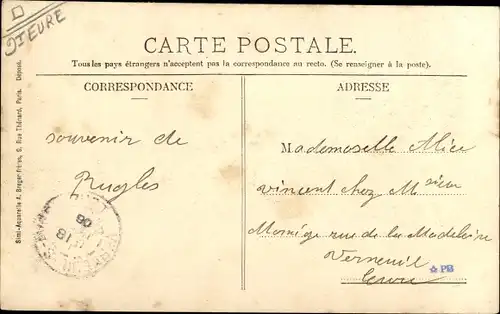 Dt EURE
CARTE POSTALE.
Tous les pays étrangers n'acceptent pas la correspondance au recto. (Se renseigner à la poste).
CORRESPONDANCE
ADRESSE
souvenir de
Rugles
Mademoselle Alice
vincent chez Msieu
rue de la Madeleine
Verneuil
Eure
Simi-Aquarelle A. Breger Frères, 9, Rue Thénard, Paris. Déposé.
18
06
PB